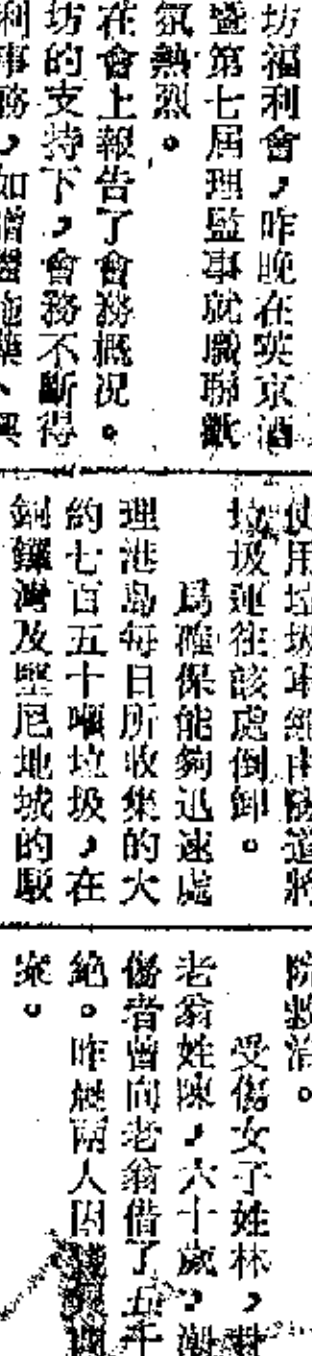 坊福利會，昨晚在英京酒
暨第七屆理監事就職聯歡
氛熱烈。
在會上報告了會務概况。
坊的支持下，會務不斷得
利事務，如贈醫施藥、興
使用垃圾車經由隧道將
垃圾運往該處倒卸。
爲確保能夠迅速處
理港島每日所收集的大
約七百五十噸垃圾，在
銅鑼灣及堅尼地城的駁
院救治。
受傷女子姓林，
老翁姓陳，六十歲，潮
傷者曾向老翁借了五千
絶。昨晚兩人因錢
案。